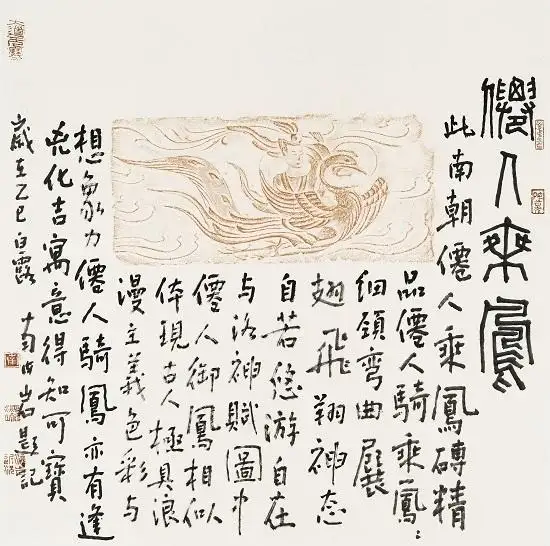 僊人乘鳳
此南朝僊人乘鳳磚精
品僊人騎乘鳳〻
细頸彎曲展
翅飛翔神态
自若悠游自在
与洛神賦圖中
僊人御鳳相似
体現古人極具浪
漫主義色彩与
想象力僊人騎鳳亦有逢
兇化吉寓意得知可寶
歲在乙巳白露
题記